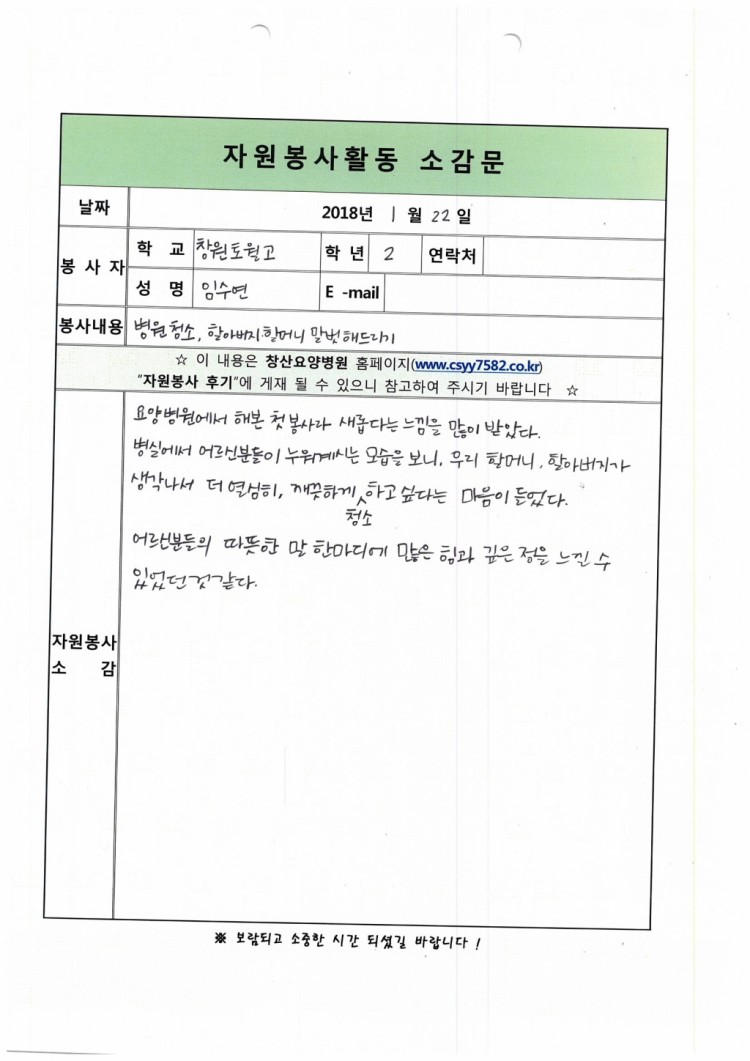 자원봉사활동 소감문
날짜 2018년 1월 22일
봉사자 학교 창원토월고 학년 2 연락처
성명 임수연 E-mail
봉사내용 병원청소, 할아버지·할머니 말벗 해드리기
☆ 이 내용은 창산요양병원 홈페이지(www.csyy7582.co.kr)
"자원봉사 후기"에 게재 될 수 있으니 참고하여 주시기 바랍니다 ☆
요양병원에서 해본 첫봉사라 새롭다는 느낌을 많이 받았다.
병실에서 어르신분들이 누워계시는 모습을 보니, 우리 할머니, 할아버지가
생각나서 더 열심히, 깨끗하게 청소하고 싶다는 마음이 들었다.
어르신분들의 따뜻한 말 한마디에 많은 힘과 깊은 정을 느낀 수
있었던것 같다.
자원봉사
소 감
※ 보람되고 소중한 시간 되셨길 바랍니다 !